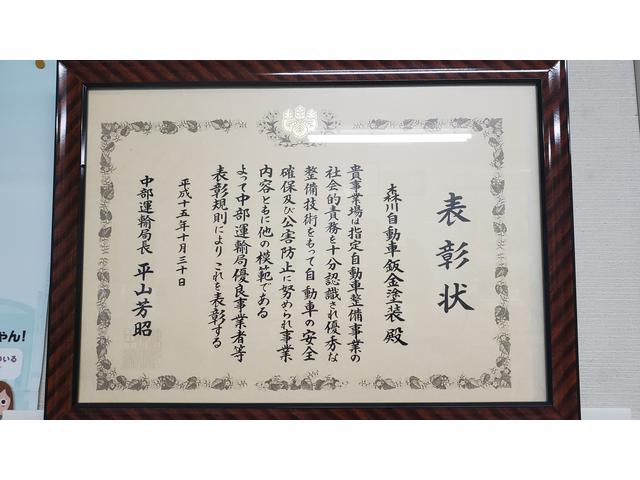 表彰状
森川自動車鈑金塗装殿
貴事業場は指定自動車整備事業の
社会的責務を十分認識され優秀な
整備技術をもって自動車の安全
確保及び公害防止に努められ事業
内容ともに他の模範である
よって中部運輸局優良事業者等
表彰規則によりこれを表彰する
平成十五年十月三十日
中部運輸局長 平山芳昭
ゃん!
いる